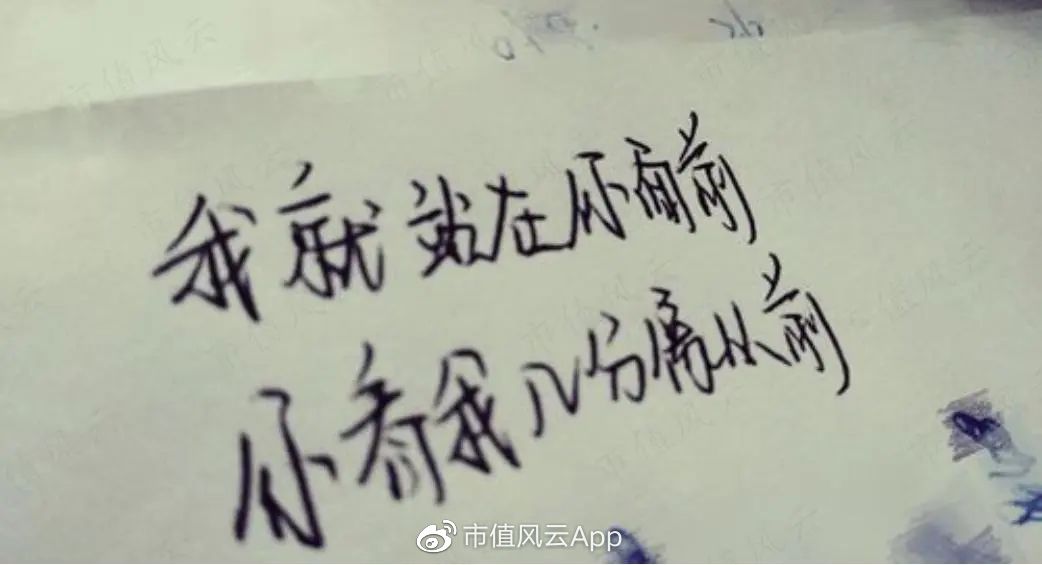 我就站在你面前
你看我几分像从前
市值风云App